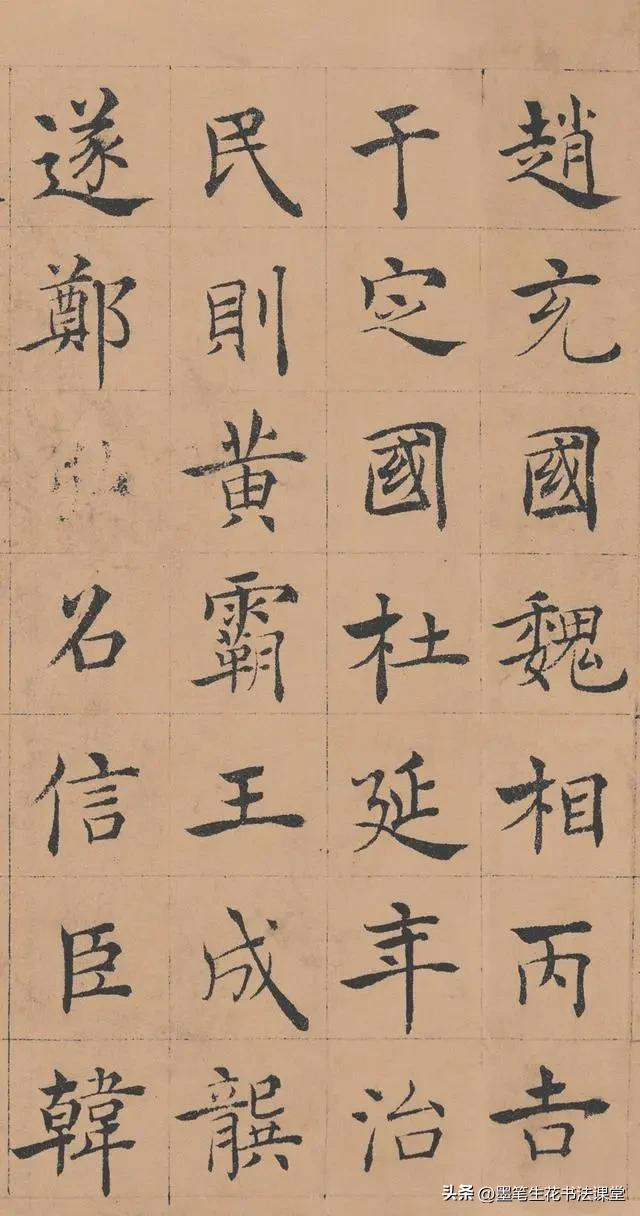 趙充國魏相丙吉
于定國杜延年治
民則黃霸王成龔
遂鄭召信臣韓
头条 @墨笔生花书法课堂